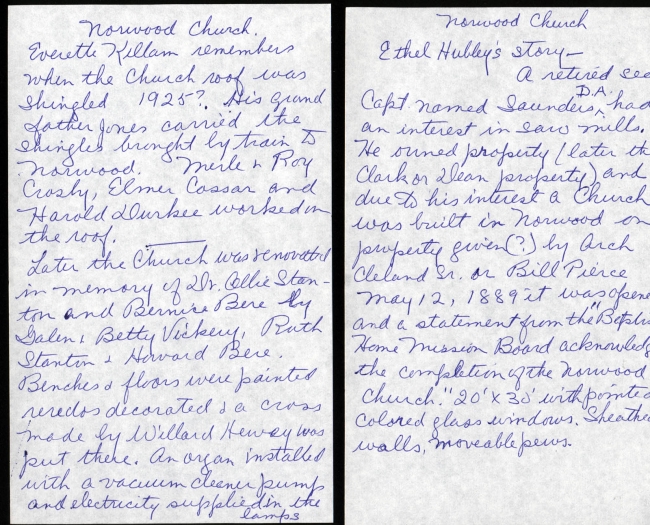 Norwood Church.
Everette Killam remembers
when the Church roof was
shingled 1925? His grand
father Jones carried the
shingles brought by train to
Norwood. Merle & Roy
Crosby, Elmer Cossar and
Harold Durkee worked on
the roof.
Later the Church was renovated
in memory of Dr. Ollie Stan-
ton and Bernice Bere by
Galen & Betty Vickery, Ruth
Stanton & Howard Bere.
Benches & floors were painted
reredos decorated & a cross
made by Willard Hewey was
put there. An organ installed
with a vacuum cleaner pump
and electricity supplied in the
lamps
Norwood Church
Ethel Hubley's story—
A retired sea
Capt. named Saunders, D.A. had
an interest in saw mills.
He owned property (later th
Clark or Dean property) and
due to his interest a Church
was built in Norwood on
property given (?) by Arch
Cleland Sr. or Bill Pierce
May 12, 1889 it was opene
and a statement from the "Baptis
Home Mission Board acknowledg
the completion of the Norwood
Church." 20' x 30' with pointed
colored glass windows. Sheathe
walls, moveable pews.